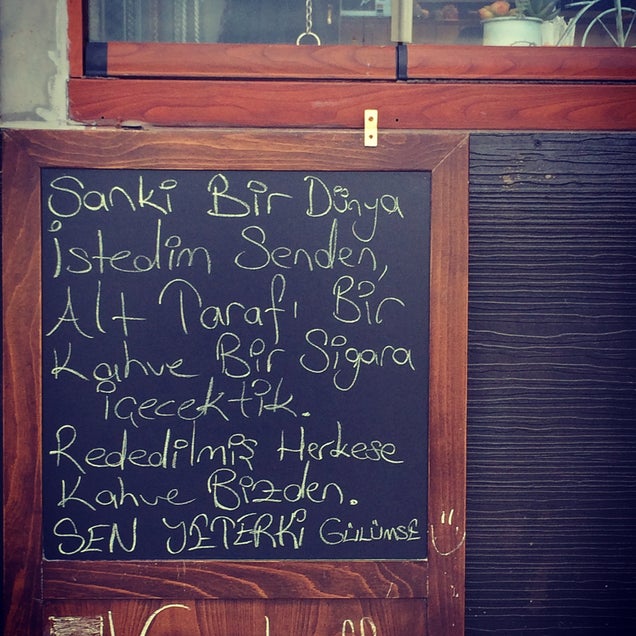 Sanki Bir Dünya
istedim Senden,
Alt Tarafı Bir
Kahve Bir Sigara
içecektik.
Rededilmiş Herkese
Kahve Bizden.
SEN YETERKİ GÜLÜMSE